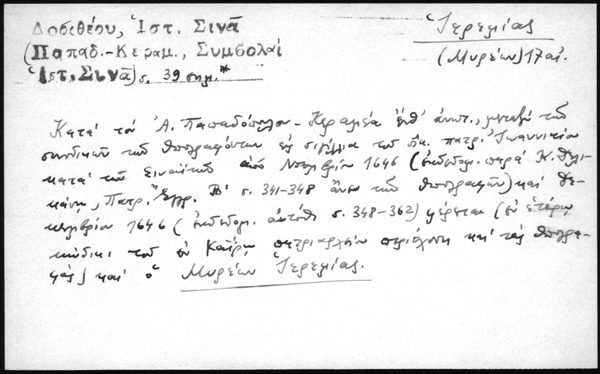 Δοσιθέου, Ἱστ. Σινᾶ
(Παπαδ.-Κεραμ., Συμβολαὶ
Ἱστ. Σινᾶ) σ. 39 σημ.*
Ἱερεμίας
(Μυρέων) 17 αἰ.
Κατὰ τὸν Ἀ. Παπαδόπουλον-Κεραμέα ἔνθ' ἀνωτ., μεταξὺ τῶν
συνοδικῶν τῶν ὑπογραφόντων ἐν σιγίλλια τοῦ Οἰκ. πατρ. Ἰωαννικίου
κατὰ τῶν Σιναϊτῶν ἀπὸ Νοεμβρίου 1646 (ἐκδεδομ. παρὰ Κ. Δελι-
κάνη, Πατρ. Ἔγγρ. Β' σ. 341-348 ἄνευ τῶν ὑπογραφῶν) καὶ Δε-
κεμβρίου 1646 (ἐκδεδομ. αὐτόθι σ. 348-362) φέρεται (ἐν ἑτέρῳ
κώδικι τοῦ ἐν Καΐρῳ πατριαρχείου περιέχοντι καὶ τὰς ὑπογρα-
φὰς) καὶ ὁ Μυρέων Ἱερεμίας.